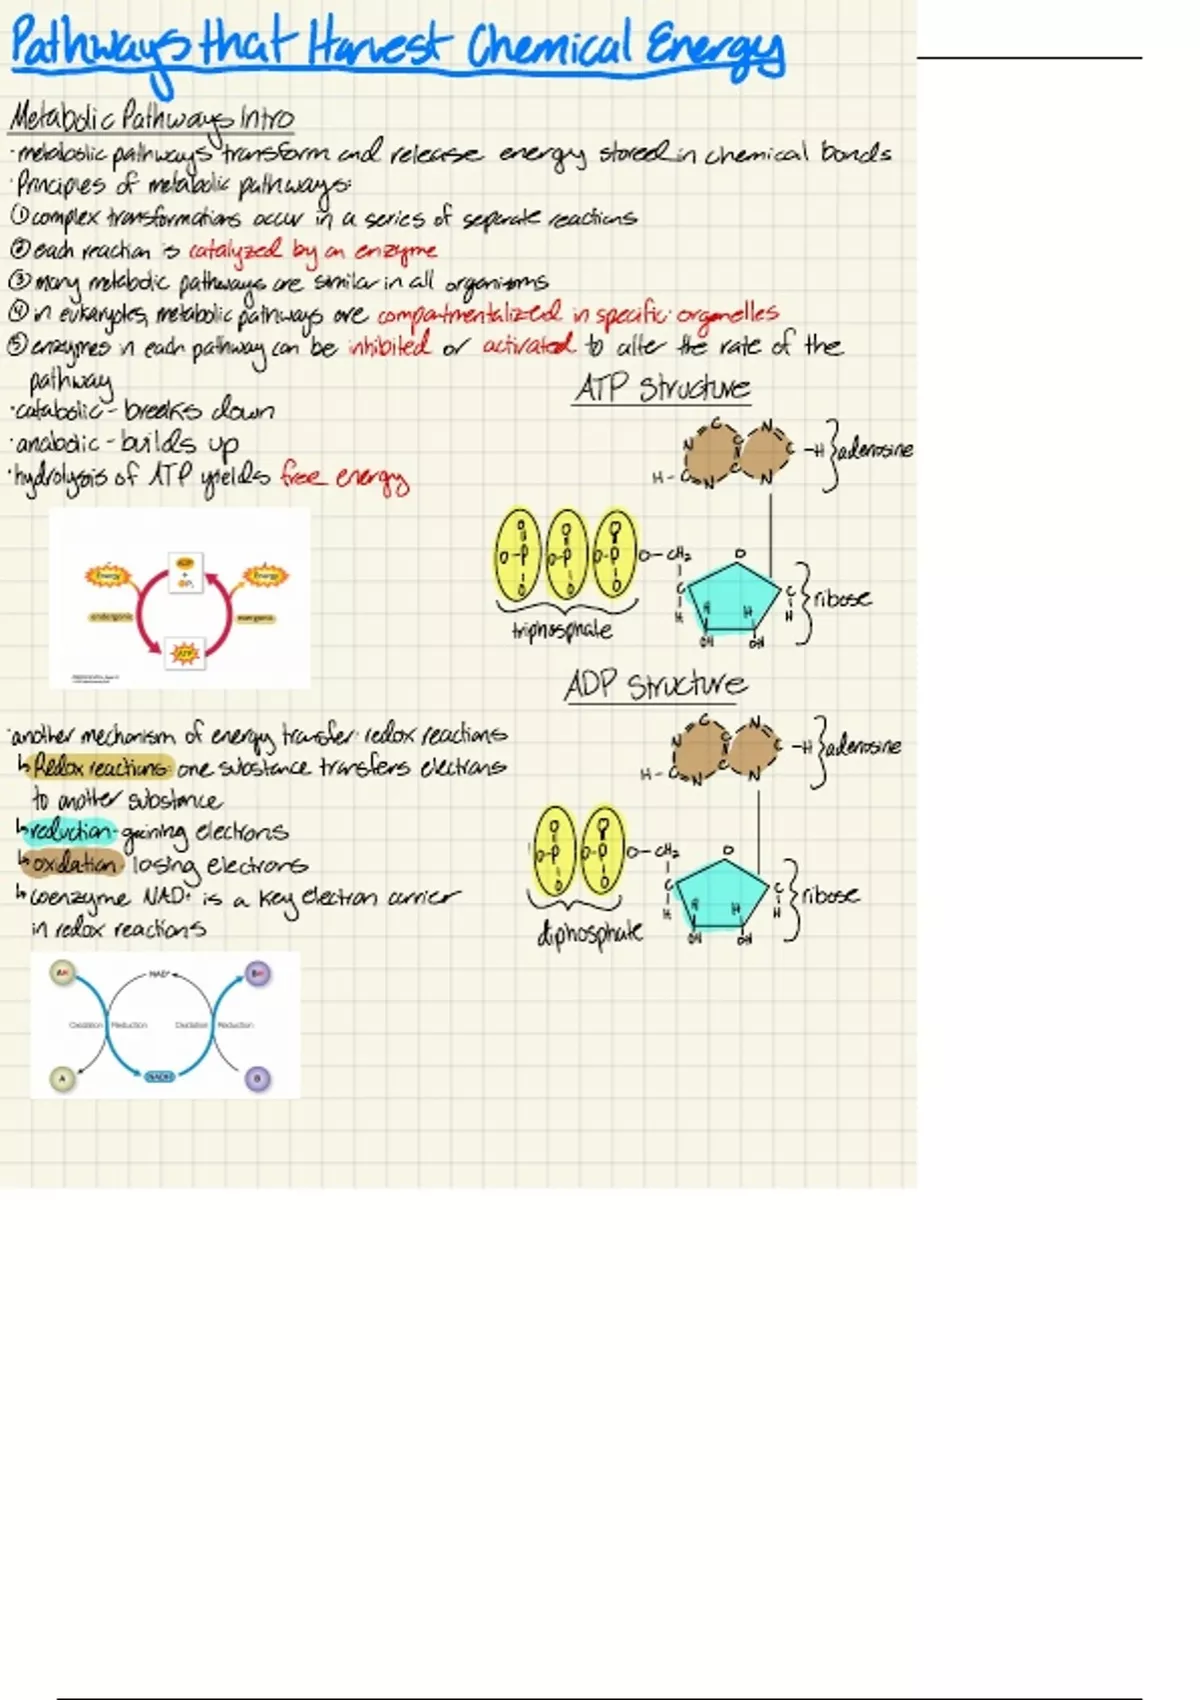 Pathways that Harvest Chemical Energy
Metabolic Pathways Intro
·metabolic pathways transform and release energy stored in chemical bonds
·Principles of metabolic pathways:
①complex transformations occur in a series of separate reactions
②each reaction is catalyzed by an enzyme
③many metabolic pathways are similar in all organisms
④in eukaryotes, metabolic pathways are compartmentalized in specific organelles
⑤enzymes in each pathway can be inhibited or activated to alter the rate of the
pathway
·catabolic - breaks down
·anabolic - builds up
·hydrolysis of ATP yields free energy
Energy
ADP
+
Pi
Energy
endergonic
exergonic
ATP
ATP Structure
C
N
N
C
C
-H
adenosine
H-C
N
C
N
O
O
O
O-P
O-P
O-P
O-CH₂
O
O
O
O
C
C
ribose
H
H
H
H
OH
OH
triphosphate
ADP Structure
C
N
N
C
C
-H
adenosine
H-C
N
C
N
O
O
O-P
O-P
O-CH₂
O
O
O
C
C
ribose
H
H
H
H
OH
OH
diphosphate
·another mechanism of energy transfer: redox reactions
↳Redox reactions: one substance transfers electrons
to another substance
↳reduction- gaining electrons
↳oxidation- losing electrons
↳coenzyme NAD+ is a key electron carrier
in redox reactions
AH
NAD+
BH
Oxidation
Reduction
Oxidation
Reduction
A
NADH
B